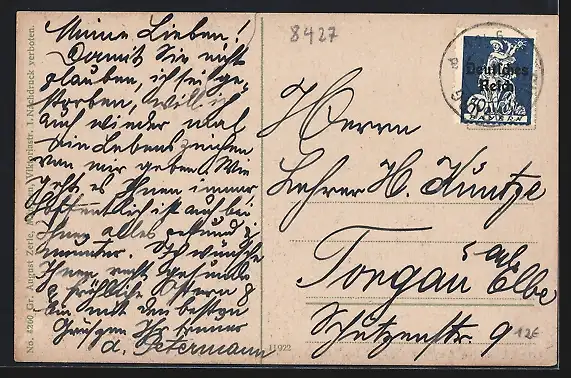 Meine Lieben!
Damit Sie nicht
glauben, ich sei ge-
storben, will ich
auch wieder mal
ein Lebenszeichen
von mir geben. Wie
geht es Ihnen immer
hoffentlich ist auch bei
Ihnen alles gesund &
munter. Ich wünsche
Ihnen recht gesunde
& fröhliche Ostern &
bin mit den besten
Grüssen Ihr immer
A. Petermann
8427
Herrn
Lehrer H. Kuntze
Torgau a/d
Elbe
Schützenstr. 9
12€
Deutsches
Reich
BAYERN
No. 4200 Gr. August Zerle, München, Viktoriastr. 1. Nachdruck verboten.
11922